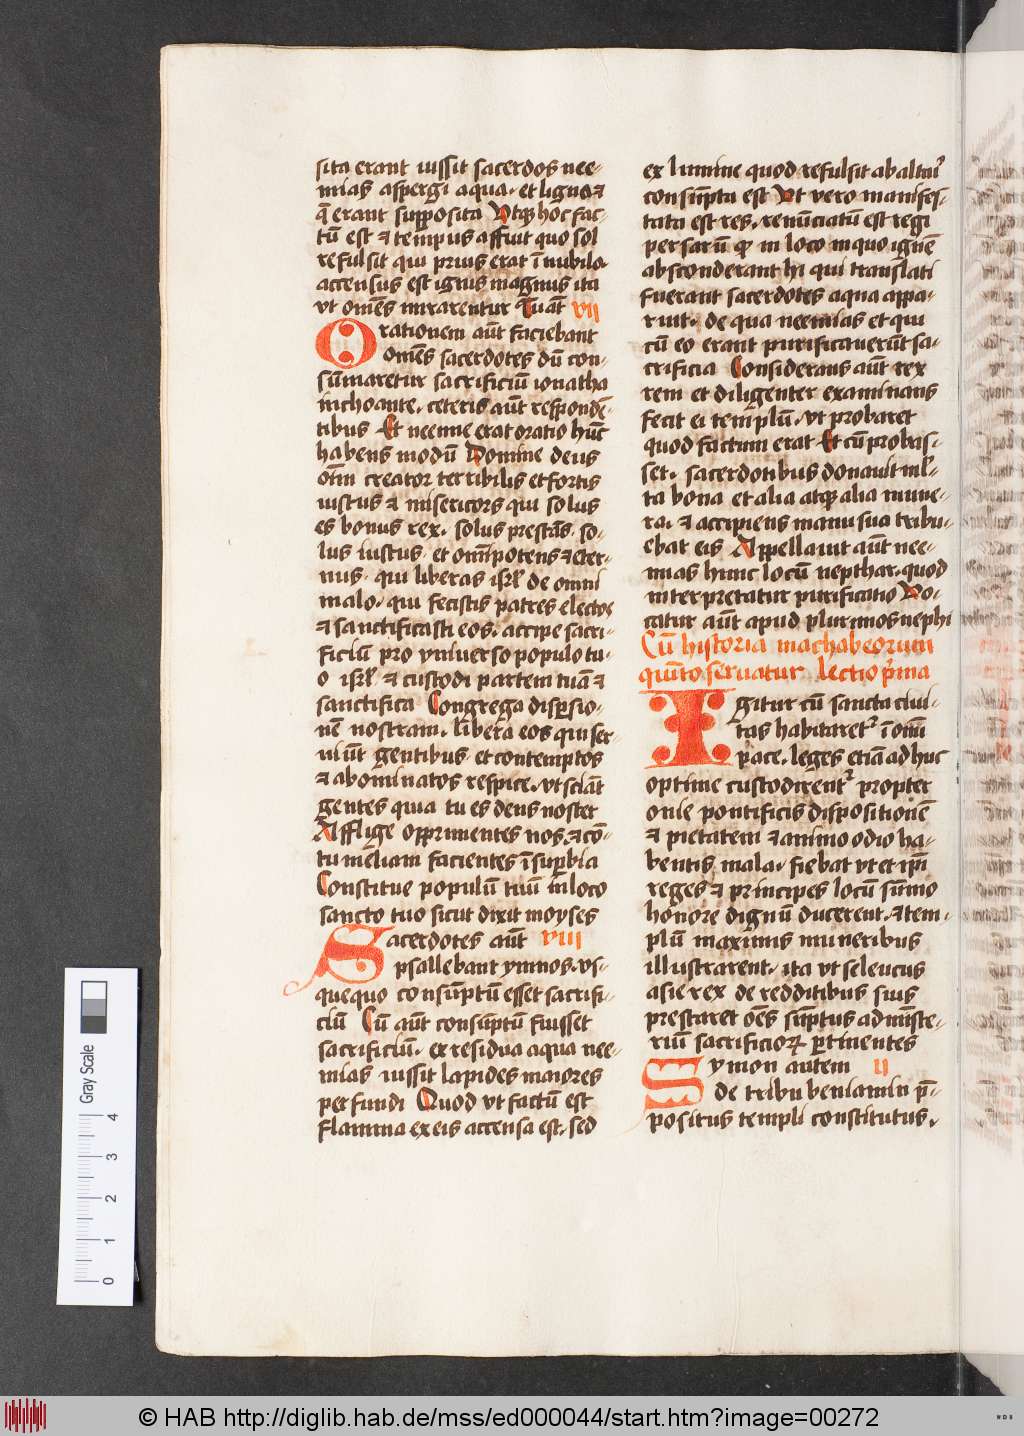 sita erant iussit sacerdos nee-
mias aspergi aqua. et ligna et
q̄ erant supposita Utq₃ hoc fac-
tū est et tempus affuit quo sol
refulsit qui prius erat ī nubilo.
accensus est ignis magnus ita
vt om̄es mirarentur Tu aūt VII
Orationem aūt faciebant
om̄es sacerdotes dū con-
sūmaretur sacrificiū ionatha
inchoante. ceteris aūt respondē-
tibus Et neemie erat oratio hūc
habens modū Domine deus
oīm creator terribilis et fortis
iustus et misericors qui solus
es bonus rex. solus prestās. so-
lus iustus. et om̄ipotens et eter-
nus. qui liberas isrl̄ de omni
malo. qui fecistis patres electos
et sanctificasti eos. accipe sacri-
ficiū pro vniverso populo tu-
o isrl̄ et custodi partem tuā et
sanctifica Congrega dispersio-
nē nostram. libera eos qui ser-
viūt gentibus et contemptos
et abominatos respice. vt sciāt
gentes quia tu es deus noster
Afflige opprimentes nos. et cō-
tumeliam facientes ī sup̄bia
Constitue populū tuū in loco
sancto tuo sicut dixit moyses
Sacerdotes aūt VIII
psallebant ymnos. vs-
quequo consūptū esset sacrifi-
ciū Cū aūt consūptū fuisset
sacrificiū. ex residua aqua nee-
mias iussit lapides maiores
perfundi Quod vt factū est
flamma ex eis accensa est. sed
ex lumine quod refulsit ab altari
consūpta est Ut vero manifes-
tata est res. renūciatū est regi
persarū qꝫ in loco in quo ignē
absconderant hi qui translati
fuerant sacerdotes aqua appa-
ruit. de qua neemias et qui
cū eo erant purificauerūt sa-
crificia Considerans aūt rex
rem et diligenter examinans
fecit ei templū. vt probaret
quod factum erat Et cū probas-
set. sacerdotibus donauit ml̄-
ta bona et alia atq₃ alia mune-
ra. et accipiens manu sua tribu-
ebat eis Appellauit aūt nee-
mias hunc locū nepthar. quod
interpretatur purificatio Vo-
catur aūt apud plurimos nephi
Cū historia machabeorum
quīto seruatur lectio p̄ma
Igitur cū sancta ciui-
tas habitaret᷑ ī omī
pace. leges etiā adhuc
optime custodirent᷑ propter
onie pontificis dispositionē
et pietatem et animo odio ha-
bentis mala. fiebat vt et ip̄i
reges et principes locū sūmo
honore dignū ducerent. et tem-
plū maximis muneribus
illustrarent. ita vt seleucus
asie rex de redditibus suis
prestaret oēs sūptus ad mīste-
riū sacrificioꝝ p̄tinentes
Symon autem II
de tribu beniamin p̄-
positus templi constitutus.
Gray Scale
0 1 2 3 4
© HAB http://diglib.hab.de/mss/ed000044/start.htm?image=00272